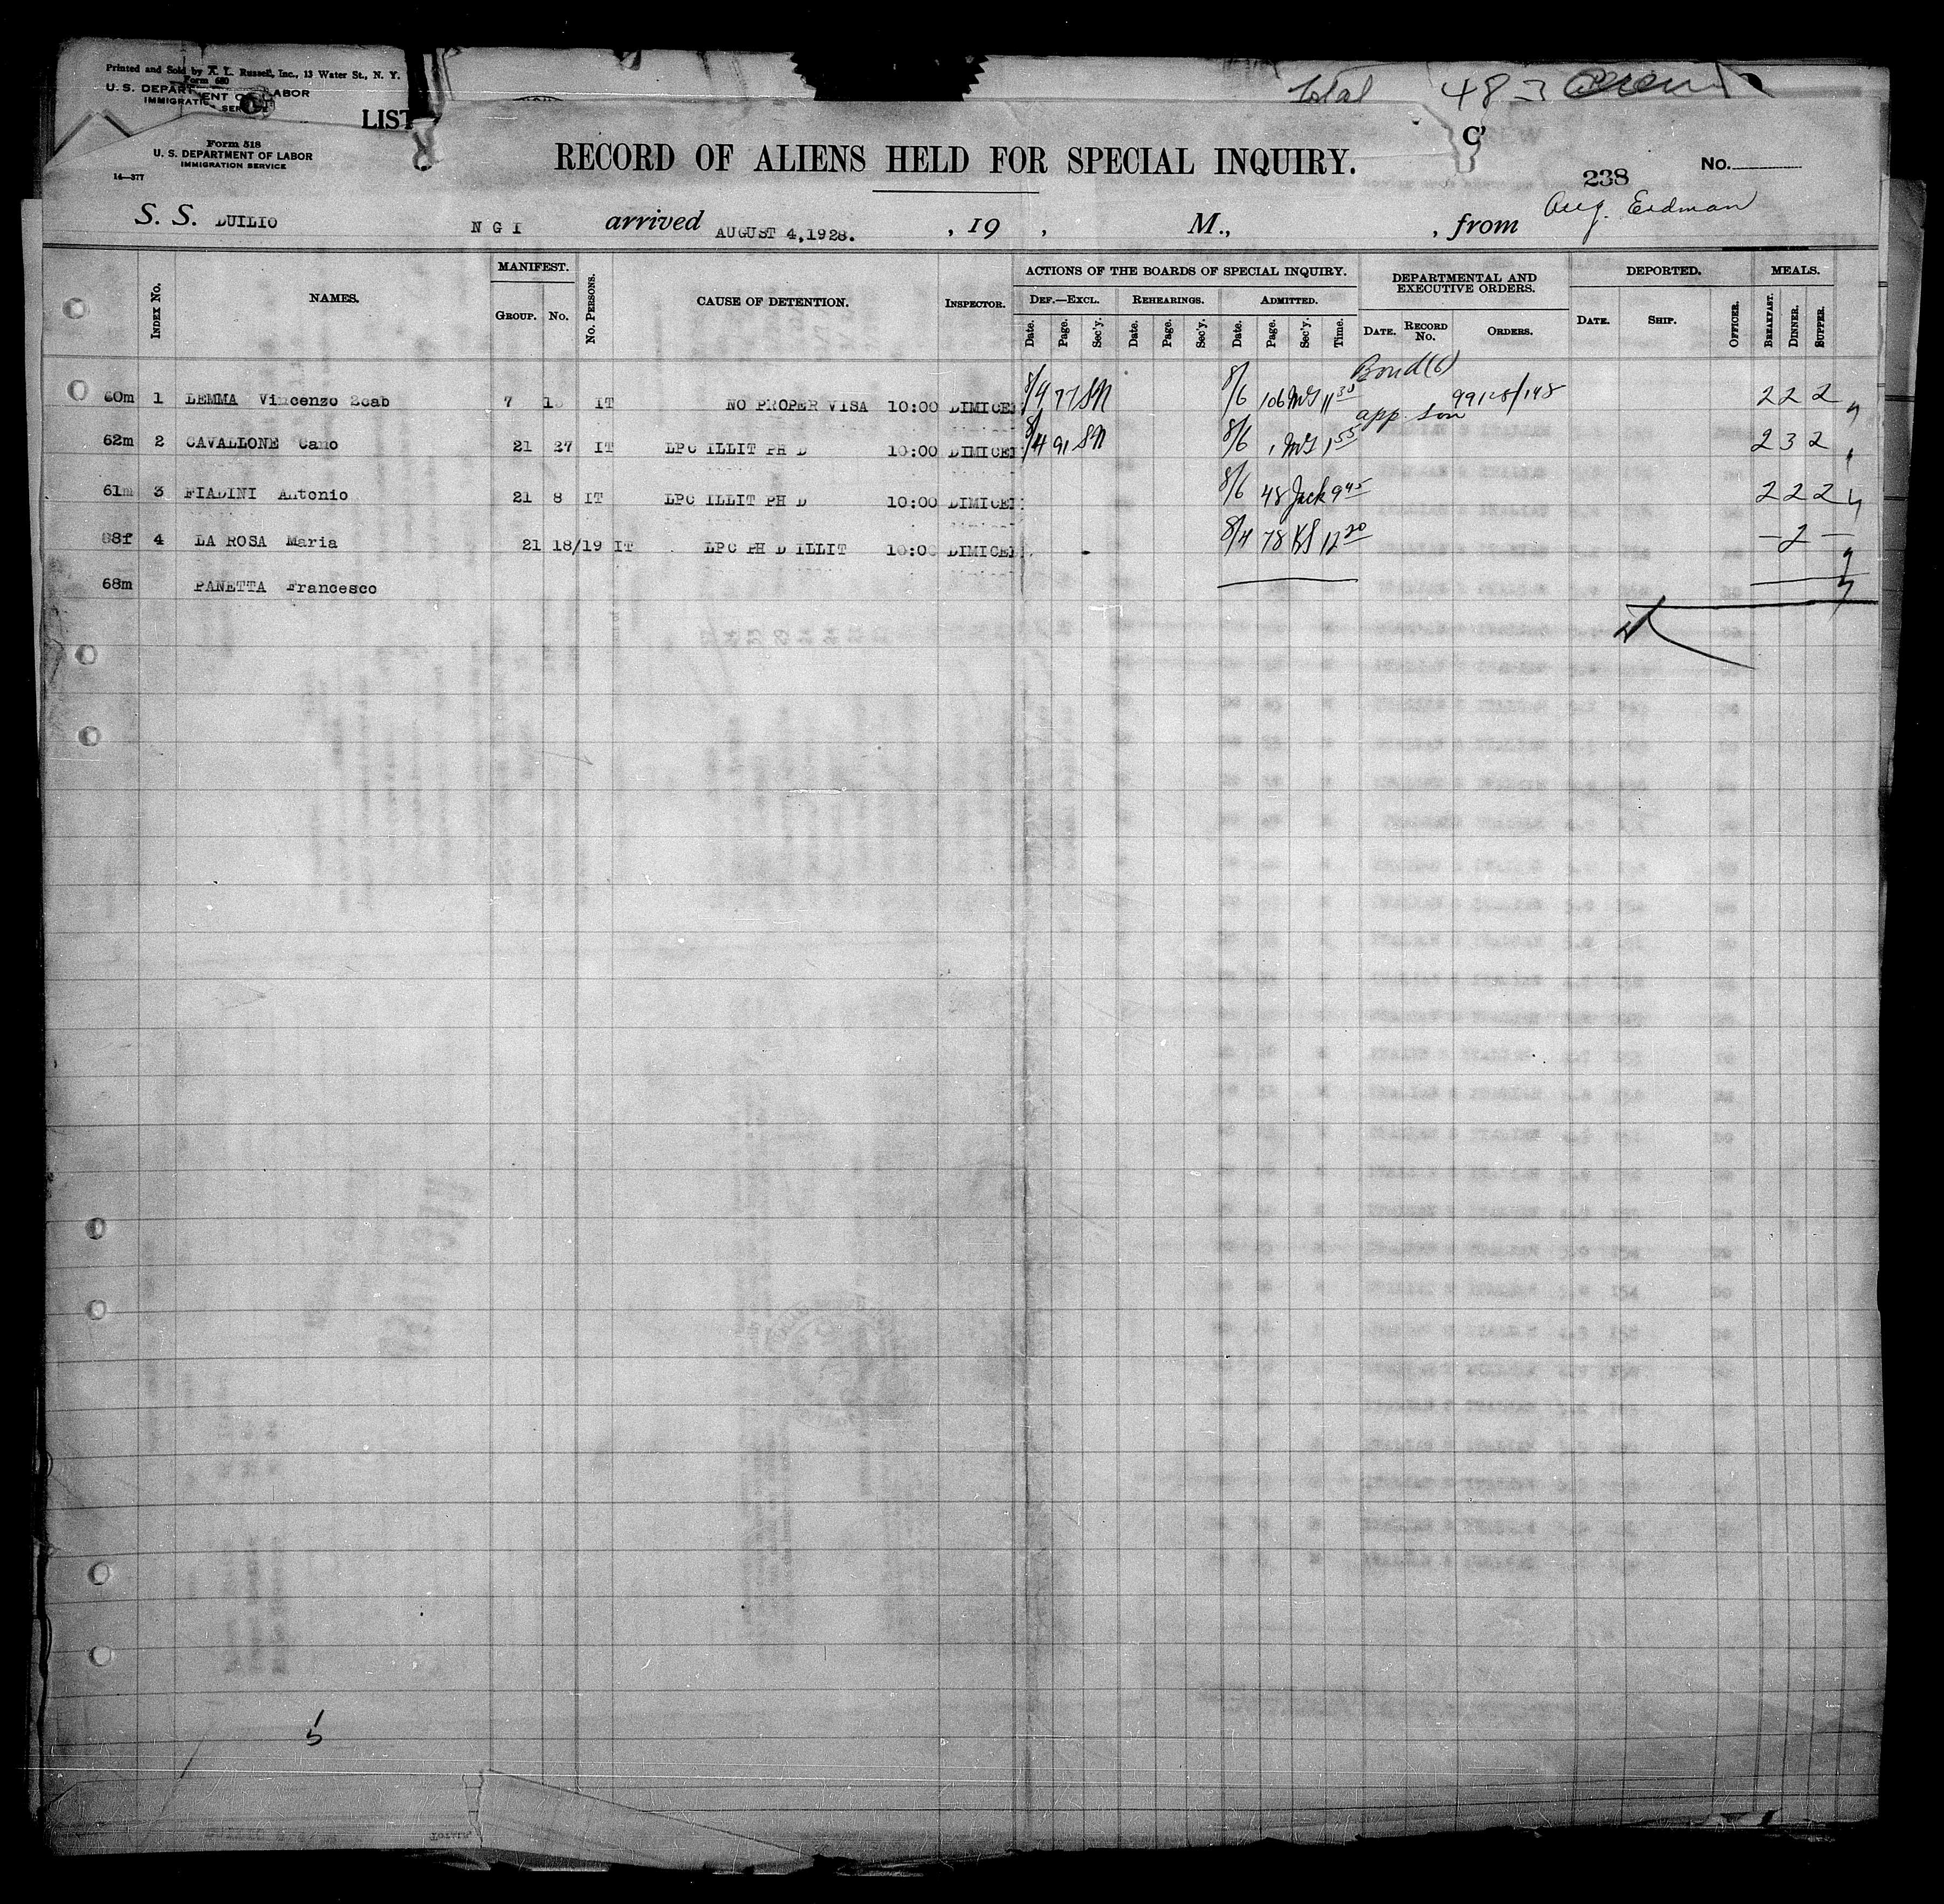 Printed and Sold by A. L. Russell, Inc., 13 Water St., N. Y.
Form 680
U. S. DEPARTMENT OF LABOR
IMMIGRATION SERVICE
LIST
Total 48
Form 518
U. S. DEPARTMENT OF LABOR
IMMIGRATION SERVICE
14—377
RECORD OF ALIENS HELD FOR SPECIAL INQUIRY.
238 No.
S. S. DUILIO N G I arrived AUGUST 4, 1928. , 19 , M., , from Aug. Erdman
INDEX No. NAMES. MANIFEST. GROUP. No. No. PERSONS. CAUSE OF DETENTION. INSPECTOR. ACTIONS OF THE BOARDS OF SPECIAL INQUIRY. DEPARTMENTAL AND EXECUTIVE ORDERS. DEPORTED. MEALS.
DEF.—EXCL. REHEARINGS. ADMITTED.
Date. Page. Sec'y. Date. Page. Sec'y. Date. Page. Sec'y. Time. DATE. RECORD No. ORDERS. DATE. SHIP. OFFICER. BREAKFAST. DINNER. SUPPER.
Bond (6)
60m 1 LEMMA Vincenzo 7 IT NO PROPER VISA 10:00 DIMICEL 8/4 77 SM 8/6 106 McG 11 30 99128/148 2 2 2
app. son
62m 2 CAVALLONE Cano 21 27 IT LPC ILLIT PH D 10:00 DIMICEL 8/4 91 SM 8/6 1 McG 1 55 2 3 2
61m 3 FIADINI Antonio 21 8 IT LPC ILLIT PH D 10:00 DIMICEL 8/6 48 Jack 9 45 2 2 2
88f 4 LA ROSA Maria 21 18/19 IT LPC PH D ILLIT 10:00 DIMICEL 8/4 78 KS 12 20 — 2 —
68m PANETTA Francesco
5